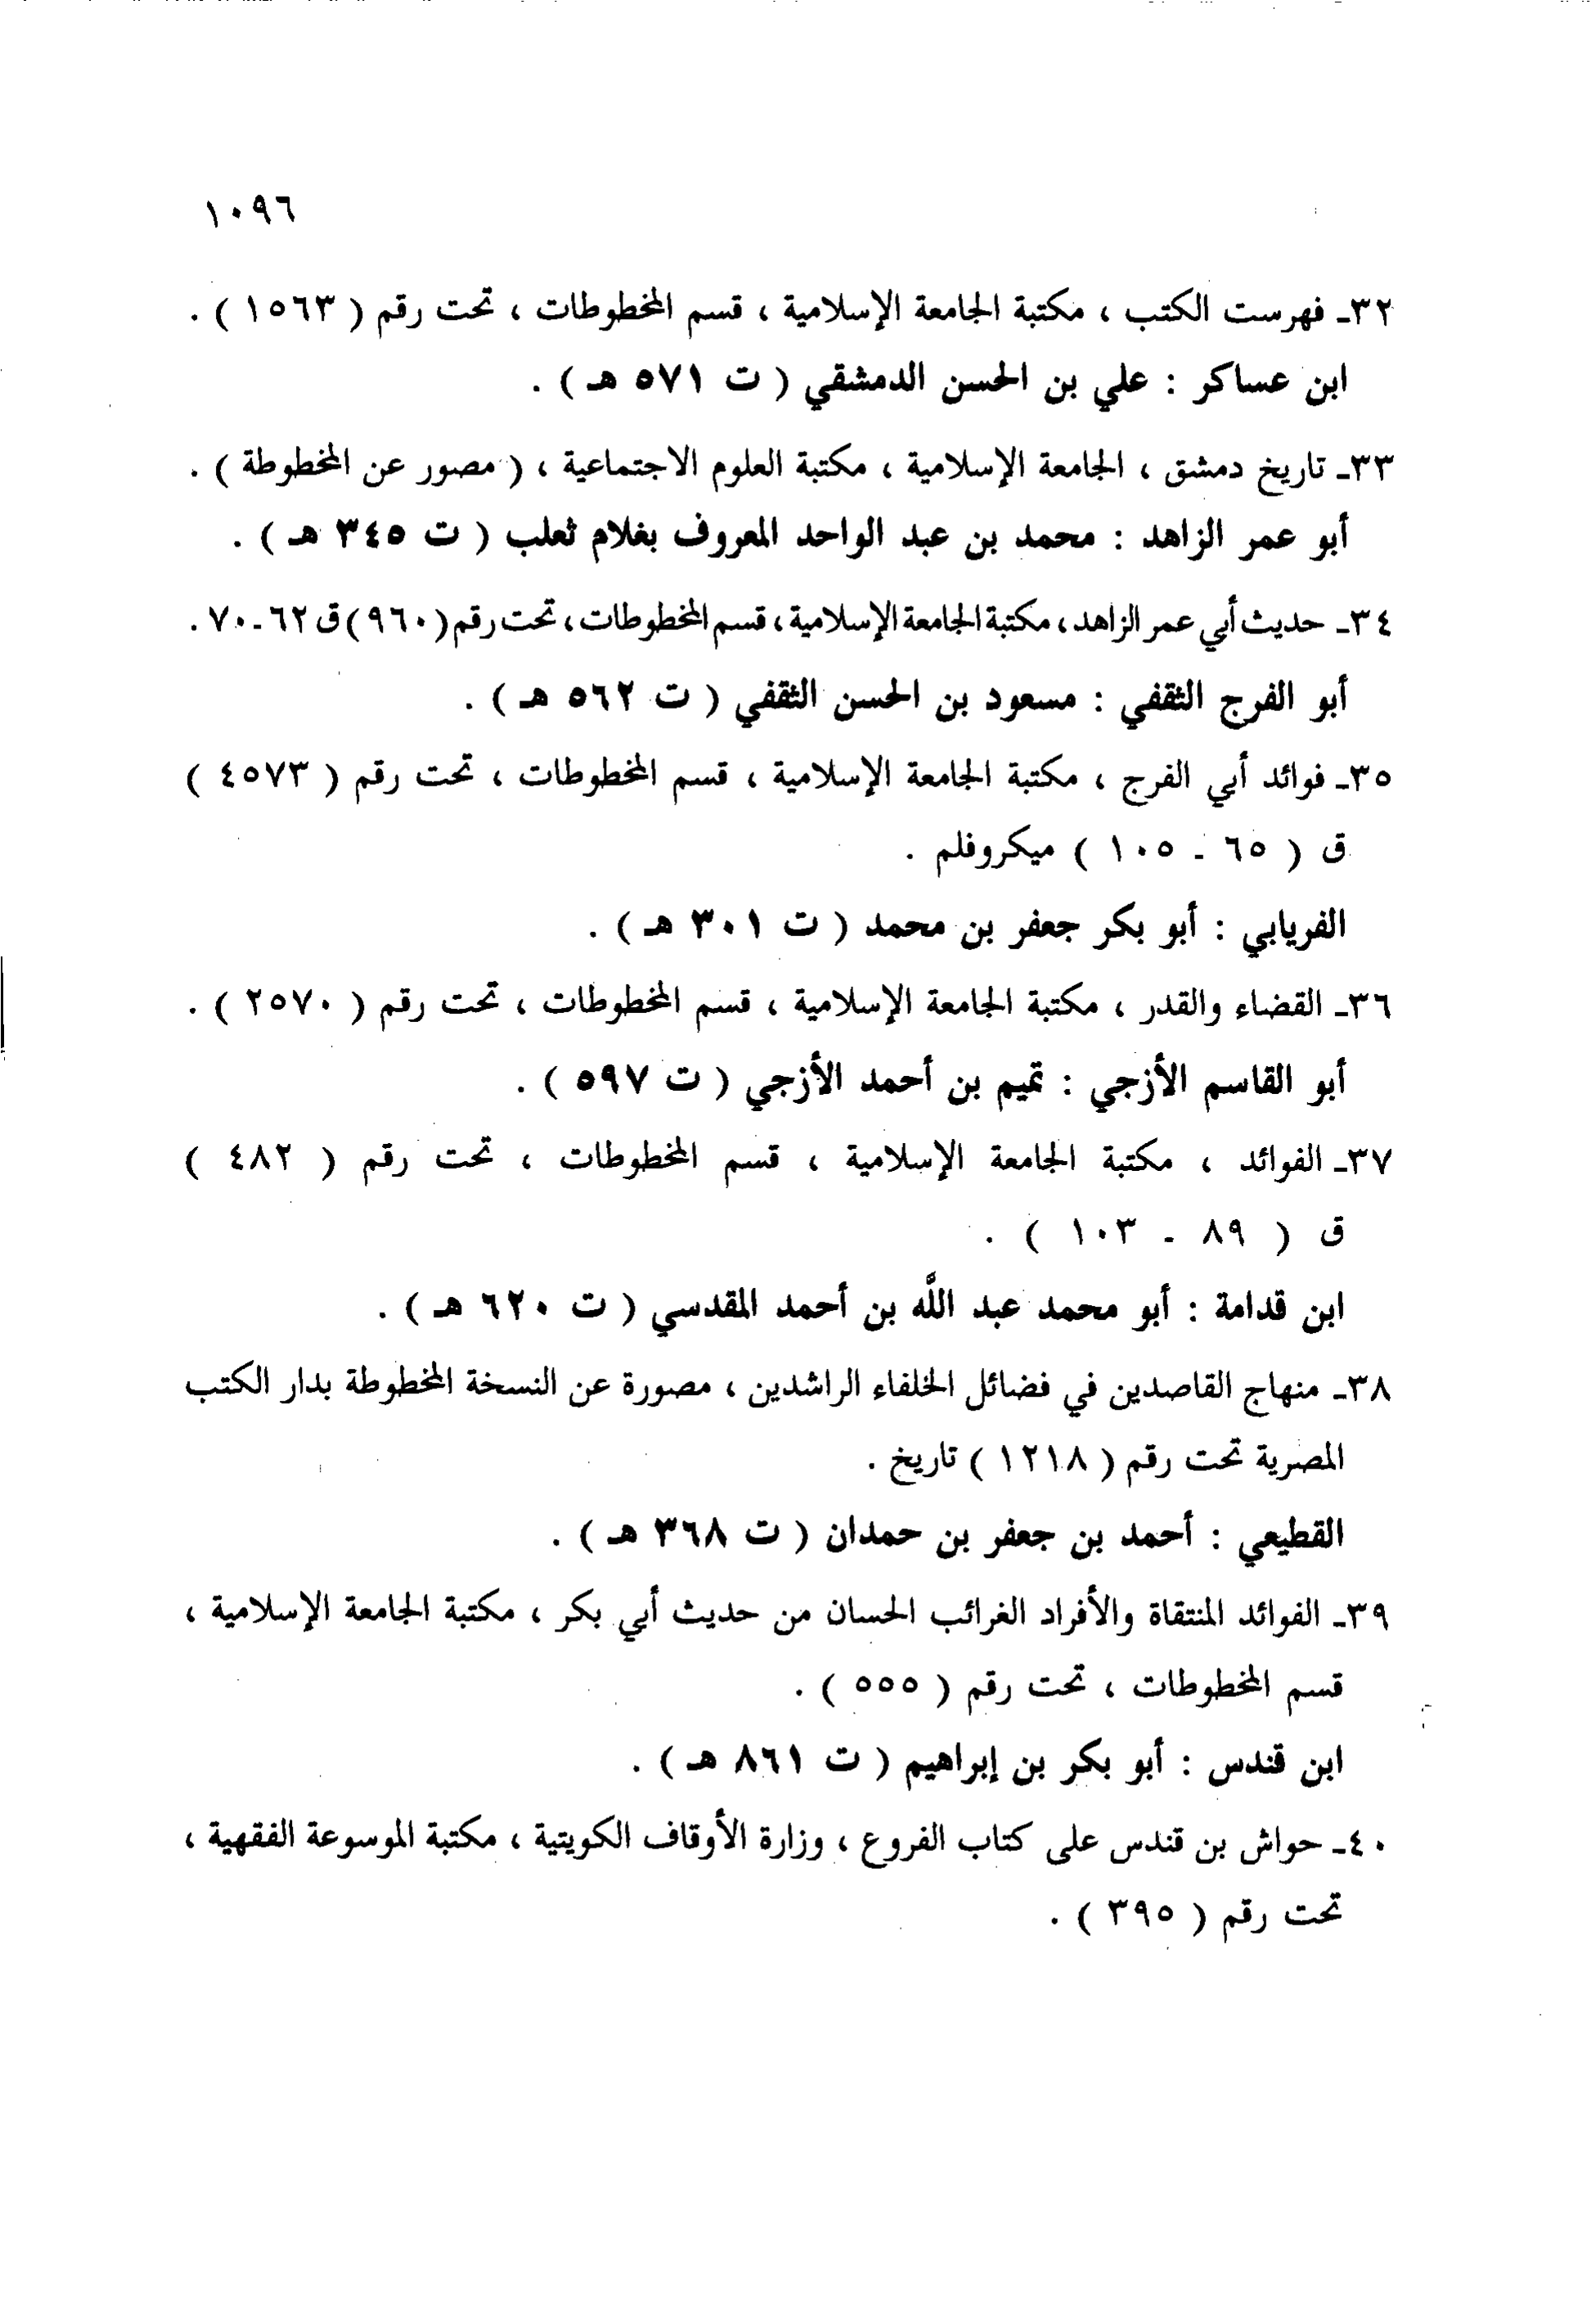 ١٠٩٦
٣٢ـ فهرست الكتب ، مكتبة الجامعة الإسلامية ، قسم المخطوطات ، تحت رقم ( ١٥٦٣ ) .
ابن عساكر : علي بن الحسن الدمشقي ( ت ٥٧١ هـ ) .
٣٣ـ تاريخ دمشق ، الجامعة الإسلامية ، مكتبة العلوم الاجتماعية ، ( مصور عن المخطوطة ) .
أبو عمر الزاهد : محمد بن عبد الواحد المعروف بغلام ثعلب ( ت ٣٤٥ هـ ) .
٣٤ـ حديث أبي عمر الزاهد ، مكتبة الجامعة الإسلامية ، قسم المخطوطات ، تحت رقم ( ٩٦٠ ) ق ٦٢ـ٧٠ .
أبو الفرج الثقفي : مسعود بن الحسن الثقفي ( ت ٥٦٢ هـ ) .
٣٥ـ فوائد أبي الفرج ، مكتبة الجامعة الإسلامية ، قسم المخطوطات ، تحت رقم ( ٤٥٧٣ )
ق ( ٦٥ ـ ١٠٥ ) ميكروفلم .
الفريابي : أبو بكر جعفر بن محمد ( ت ٣٠١ هـ ) .
٣٦ـ القضاء والقدر ، مكتبة الجامعة الإسلامية ، قسم المخطوطات ، تحت رقم ( ٢٥٧٠ ) .
أبو القاسم الأزجي : تميم بن أحمد الأزجي ( ت ٥٩٧ ) .
٣٧ـ الفوائد ، مكتبة الجامعة الإسلامية ، قسم المخطوطات ، تحت رقم ( ٤٨٢ )
ق ( ٨٩ ـ ١٠٣ ) .
ابن قدامة : أبو محمد عبد اللَّه بن أحمد المقدسي ( ت ٦٢٠ هـ ) .
٣٨ـ منهاج القاصدين في فضائل الخلفاء الراشدين ، مصورة عن النسخة المخطوطة بدار الكتب
المصرية تحت رقم ( ١٢١٨ ) تاريخ .
القطيعي : أحمد بن جعفر بن حمدان ( ت ٣٦٨ هـ ) .
٣٩ـ الفوائد المنتقاة والأفراد الغرائب الحسان من حديث أبي بكر ، مكتبة الجامعة الإسلامية ،
قسم المخطوطات ، تحت رقم ( ٥٥٥ ) .
ابن قندس : أبو بكر بن إبراهيم ( ت ٨٦١ هـ ) .
٤٠ـ حواش بن قندس على كتاب الفروع ، وزارة الأوقاف الكويتية ، مكتبة الموسوعة الفقهية ،
تحت رقم ( ٣٩٥ ) .